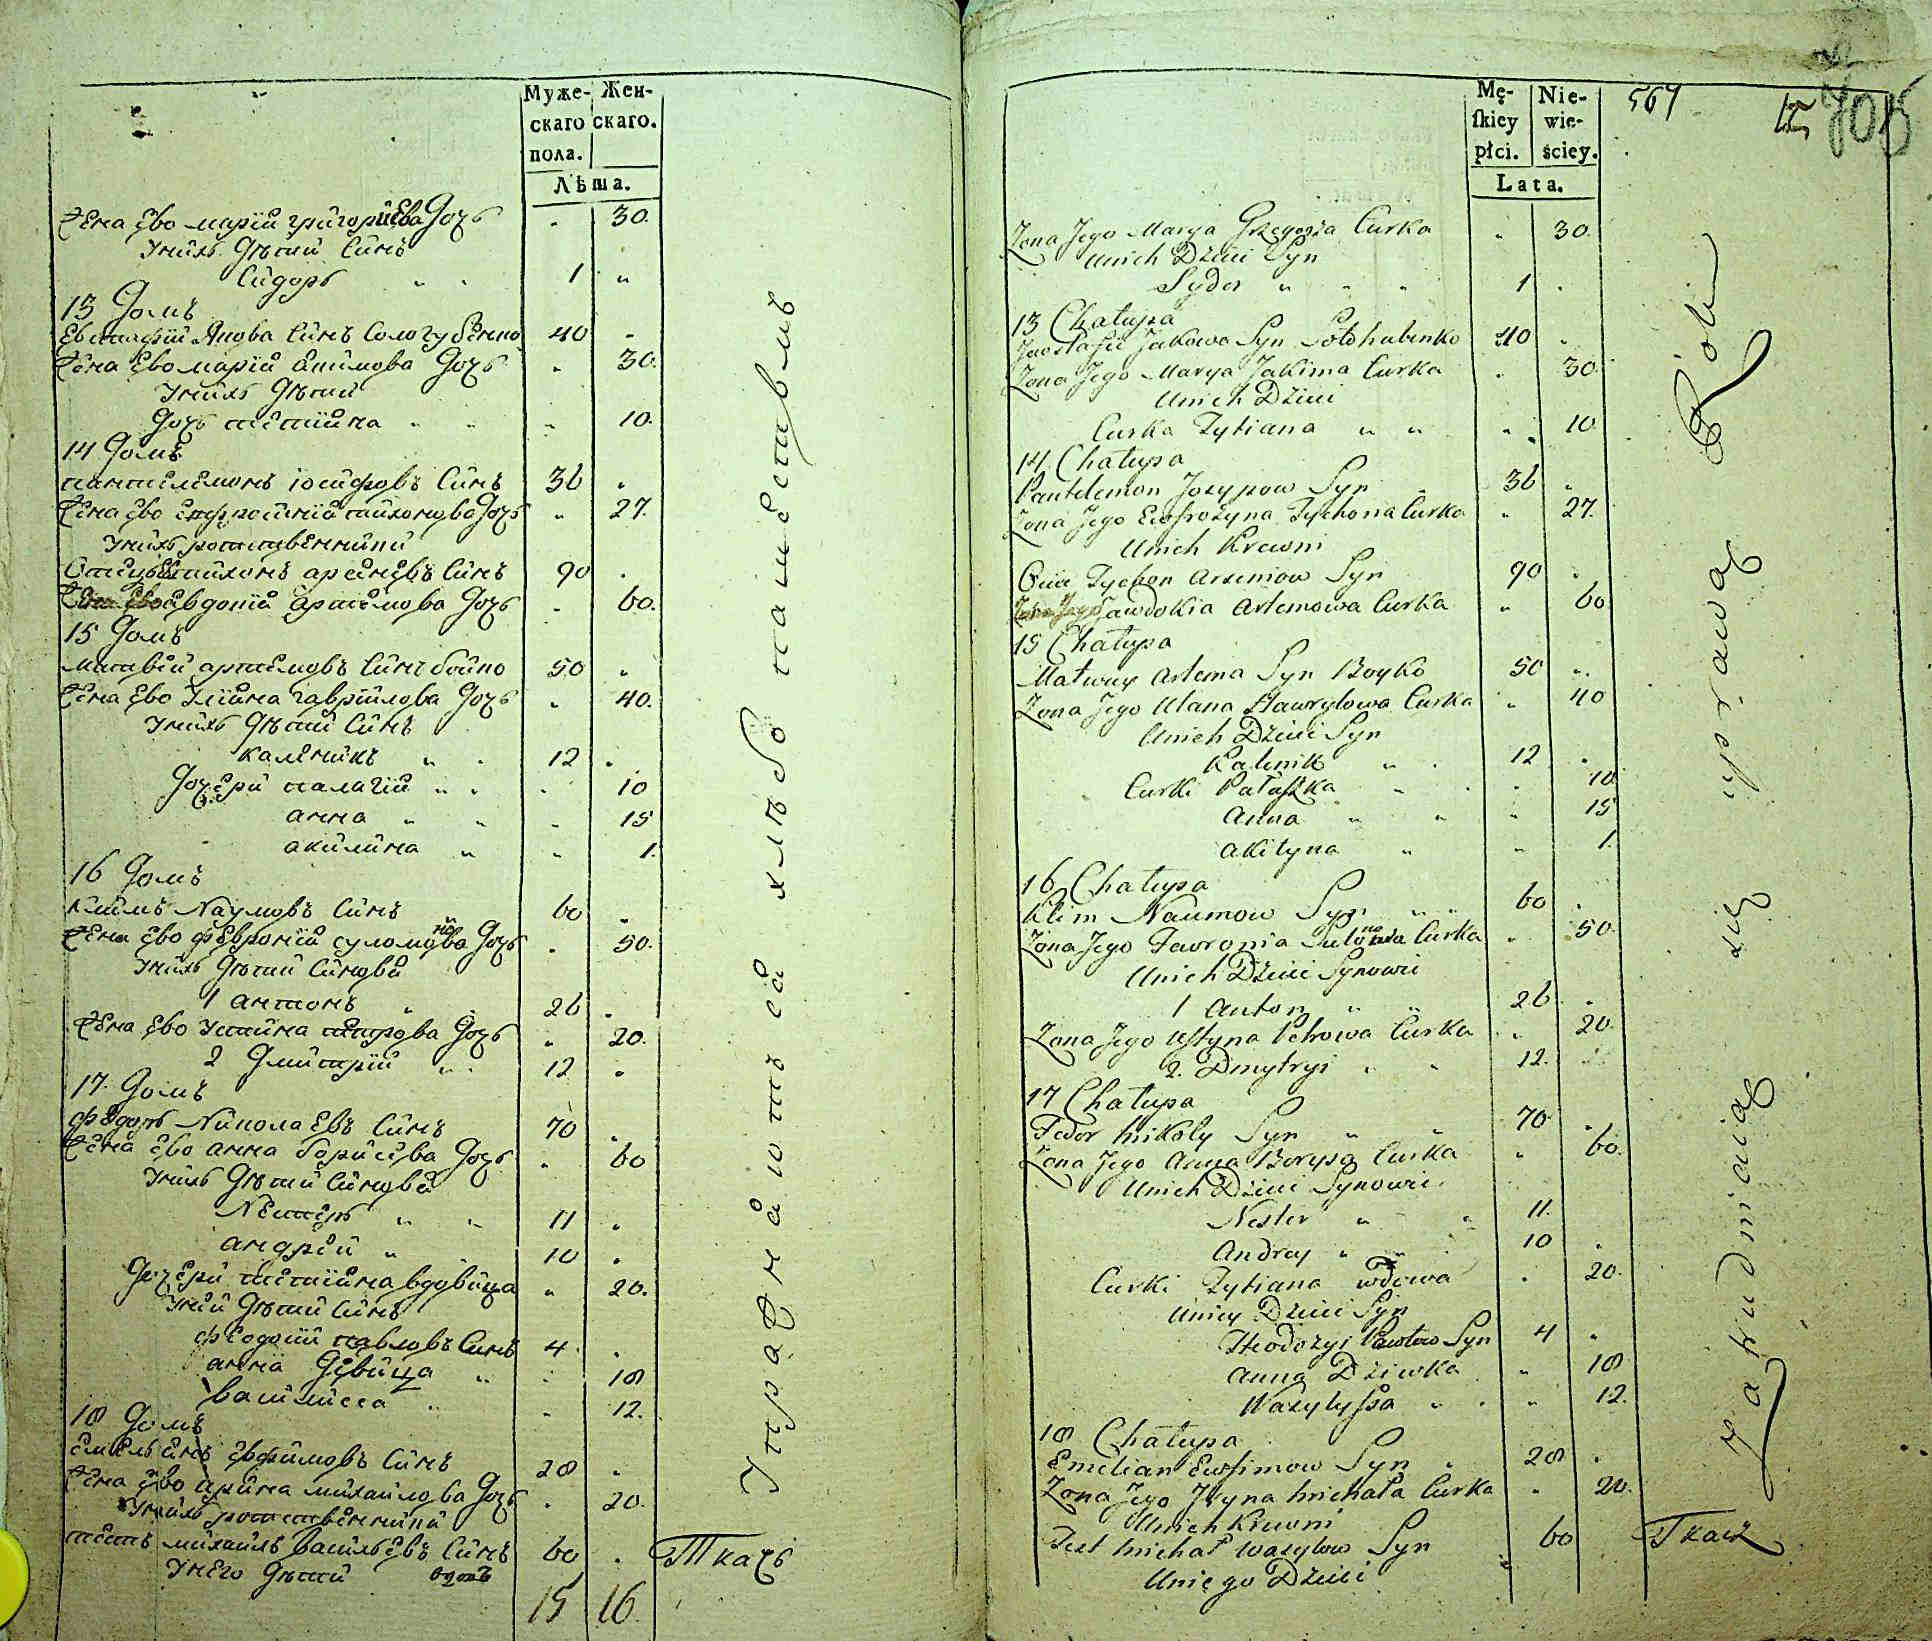 Муже-
скаго
пола.
Жен-
скаго.
Лѣта.
Жена Ево Марія Григоріева Дочь 30.
Унихъ Дѣтей Синъ
Сидоръ „ „ 1 „
13 Домъ
Евстафій Якова Синъ Сологубенко 40 „
Жена Ево Марія Акимова Дочь „ 30.
Унихъ Дѣтей
Дочь Тетіяна „ „ „ 10.
14 Домъ
Пантелемонъ Іосифовъ Синъ 36 „
Жена Ево Ефросинія Тихонова Дочь „ 27.
Унихъ родственники
Отецъ Тихонъ Арсеневъ Синъ 90 „
Евдокія Артемова Дочь „ 60.
15 Домъ
Матвей Артемовъ Синъ Бойко 50 „
Жена Ево Уліяна Гаврилова Дочь „ 40.
Унихъ Дѣтей Синъ
Калѣникъ „ „ 12 „
Дочери Палагія „ „ „ 10
Анна „ „ „ 15
Акилина „ „ 1.
16 Домъ
Климъ Наумовъ Синъ 60 „
Жена Ево Февронія Дочь „ 50.
Унихъ Дѣтей Синови
1 Антонъ „ 26 „
Жена Ево Устина Петрова Дочь „ 20.
2 Дмитрій „ „ 12 „
17. Домъ
Федоръ Николаевъ Синъ 70 „
Жена Ево Анна Борисева Дочь „ 60
Унихъ Дѣтей Синови
Нестеръ „ „ 11 „
Андрей „ 10 „
Дочери Тетіяна вдовица „ 20.
Уней Дѣтей Синъ
Феодосій Павловъ Синъ 4. „
Анна Девица „ „ 18
Василисса „ „ 12.
18 Домъ
Емельянъ Ефимовъ Синъ 28 „
Жена Ево Арина Михайлова Дочь „ 20.
Унихъ родственники
Тесть Михаилъ Васильевъ Синъ 60 „ Ткачь
Унего Дѣтей
15 16.
Упражняются хлѣбопашествомъ
Mę-
ſkiey
płci.
Nie-
wie-
ściey.
Lata.
567
705
Zona Jego Marya Grzegorza Curka „ 30.
Unich Dzieci Syn
Sydor „ „ „ 1 „
13 Chałupa
Jewstafii Jakowa Syn Sołohubenko 40 „
Zona Jego Marya Jakima Curka „ 30
Unich Dzieci
Curka Tytiana „ „ „ 10
14 Chałupa
Pantelemon Jozypow Syn „ 36 „
Zona Jego Ewfrozyna Tychona Curka „ 27.
Unich Krewni
Ociec Tychon Arseniow Syn 90 „
Jawdokia Artemowa Curka „ 60
15 Chałupa
Matwey Artema Syn Boyko 50 „
Zona Jego Ulana Hawryłowa Curka „ 40
Unich Dzieci Syn
Kalenik „ „ 12 „
Curki Pałaszka „ „ „ 10
Anna „ „ „ 15
Akilyna „ „ 1.
16 Chałupa
Klim Naumow Syn „ „ 60 „
Zona Jego Fawronia Curka „ 50.
Unich Dzieci Synowie
1 Anton „ „ 26 „
Zona Jego Ustyna Petrowa Curka „ 20.
2. Dmytryi „ „ 12. „
17 Chałupa
Fedor Mikoły Syn „ „ 70 „
Zona Jego Anna Borysa Curka „ 60.
Unich Dzieci Synowie
Nester „ „ 11.
Andrey „ „ 10 „
Curki Tytiana wdowa „ 20.
Uniey Dzieci Syn
Theodozyi Pawłow Syn 4 „
Anna Dziewka „ 18
Wasylyssa „ „ „ 12.
18 Chałupa
Emelian Ewfimow Syn „ 28 „
Zona Jego Iryna Michała Curka „ 20.
Unich Krewni
Test Michał Wasylow Syn „ 60 Tkacz
Uniego Dzieci
Zatrudniaią się uprawą Roli